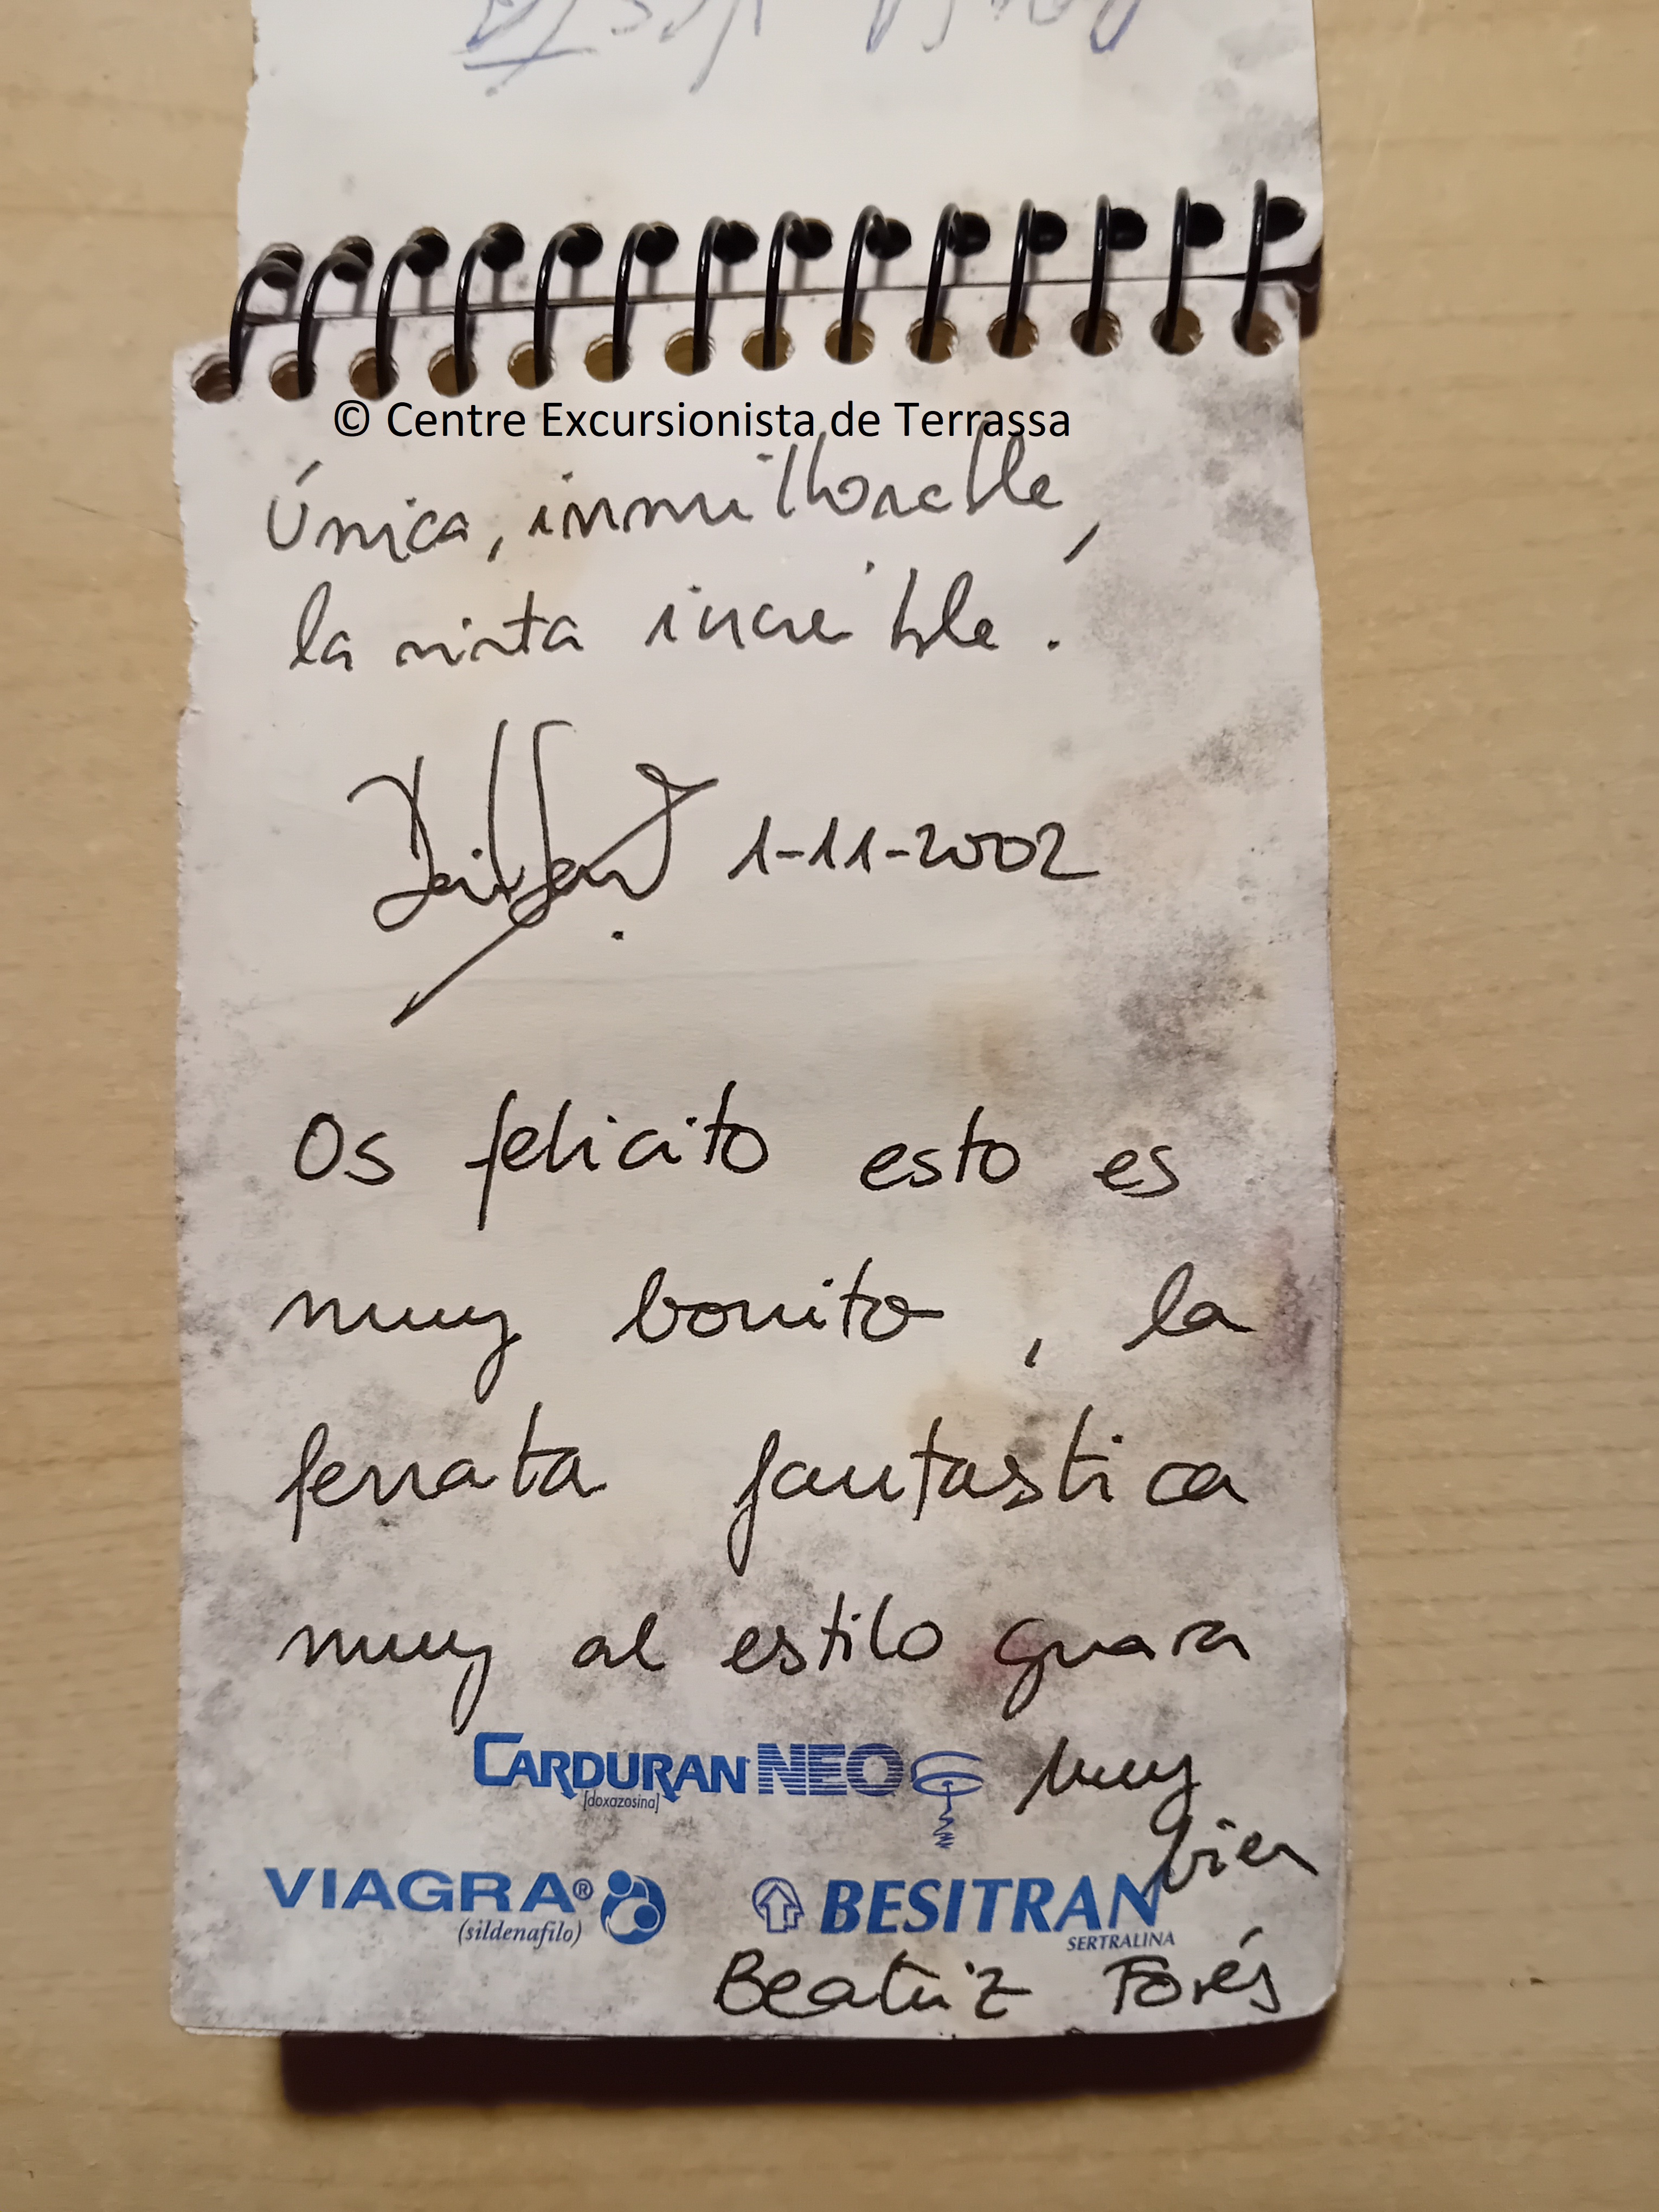 © Centre Excursionista de Terrassa
Única, inmillorable,
la vista increible.
1-11-2002
Os felicito esto es
muy bonito, la
ferrata fantastica
muy al estilo guara
muy
bien
CARDURAN NEO
[doxazosina]
VIAGRA®
(sildenafilo)
BESITRAN
SERTRALINA
Beatriz Forés